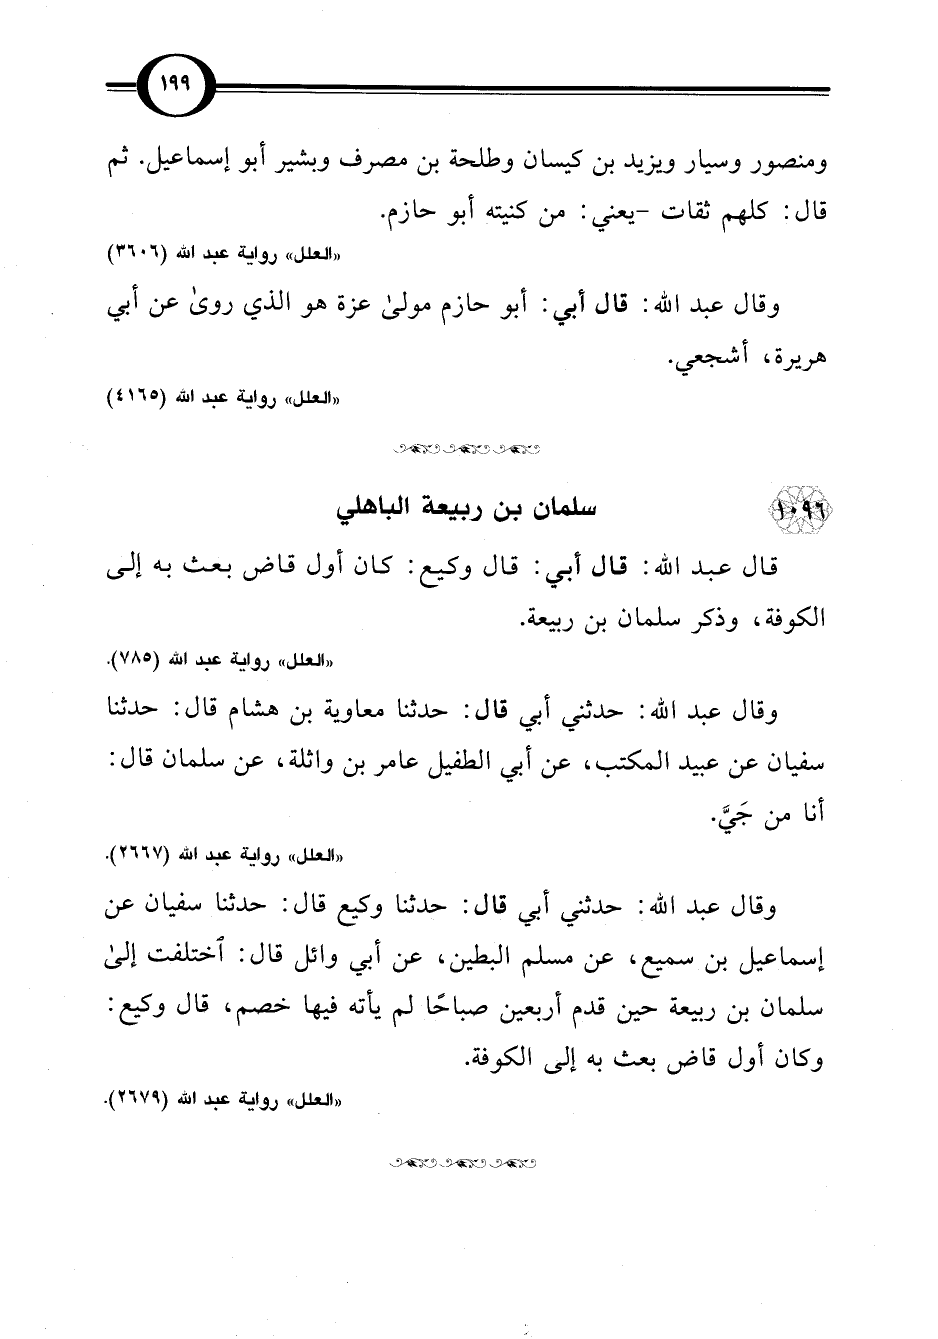 ١٩٩
ومنصور وسيار ويزيد بن كيسان وطلحة بن مصرف وبشير أبو إسماعيل. ثم
قال: كلهم ثقات -يعني: من كنيته أبو حازم.
«العلل» رواية عبد الله (٣٦٠٦)
وقال عبد الله: قال أبي: أبو حازم مولىٰ عزة هو الذي روىٰ عن أبي
هريرة، أشجعي.
«العلل» رواية عبد الله (٤١٦٥)
١٠٩٦ سلمان بن ربيعة الباهلي
قال عبد الله: قال أبي: قال وكيع: كان أول قاض بعث به إلى
الكوفة، وذكر سلمان بن ربيعة.
«العلل» رواية عبد الله (٧٨٥).
وقال عبد الله: حدثني أبي قال: حدثنا معاوية بن هشام قال: حدثنا
سفيان عن عبيد المكتب، عن أبي الطفيل عامر بن واثلة، عن سلمان قال:
أنا من جَيَّ.
«العلل» رواية عبد الله (٢٦٦٧).
وقال عبد الله: حدثني أبي قال: حدثنا وكيع قال: حدثنا سفيان عن
إسماعيل بن سميع، عن مسلم البطين، عن أبي وائل قال: ٱختلفت إلىٰ
سلمان بن ربيعة حين قدم أربعين صباحًا لم يأته فيها خصم، قال وكيع:
وكان أول قاض بعث به إلى الكوفة.
«العلل» رواية عبد الله (٢٦٧٩).